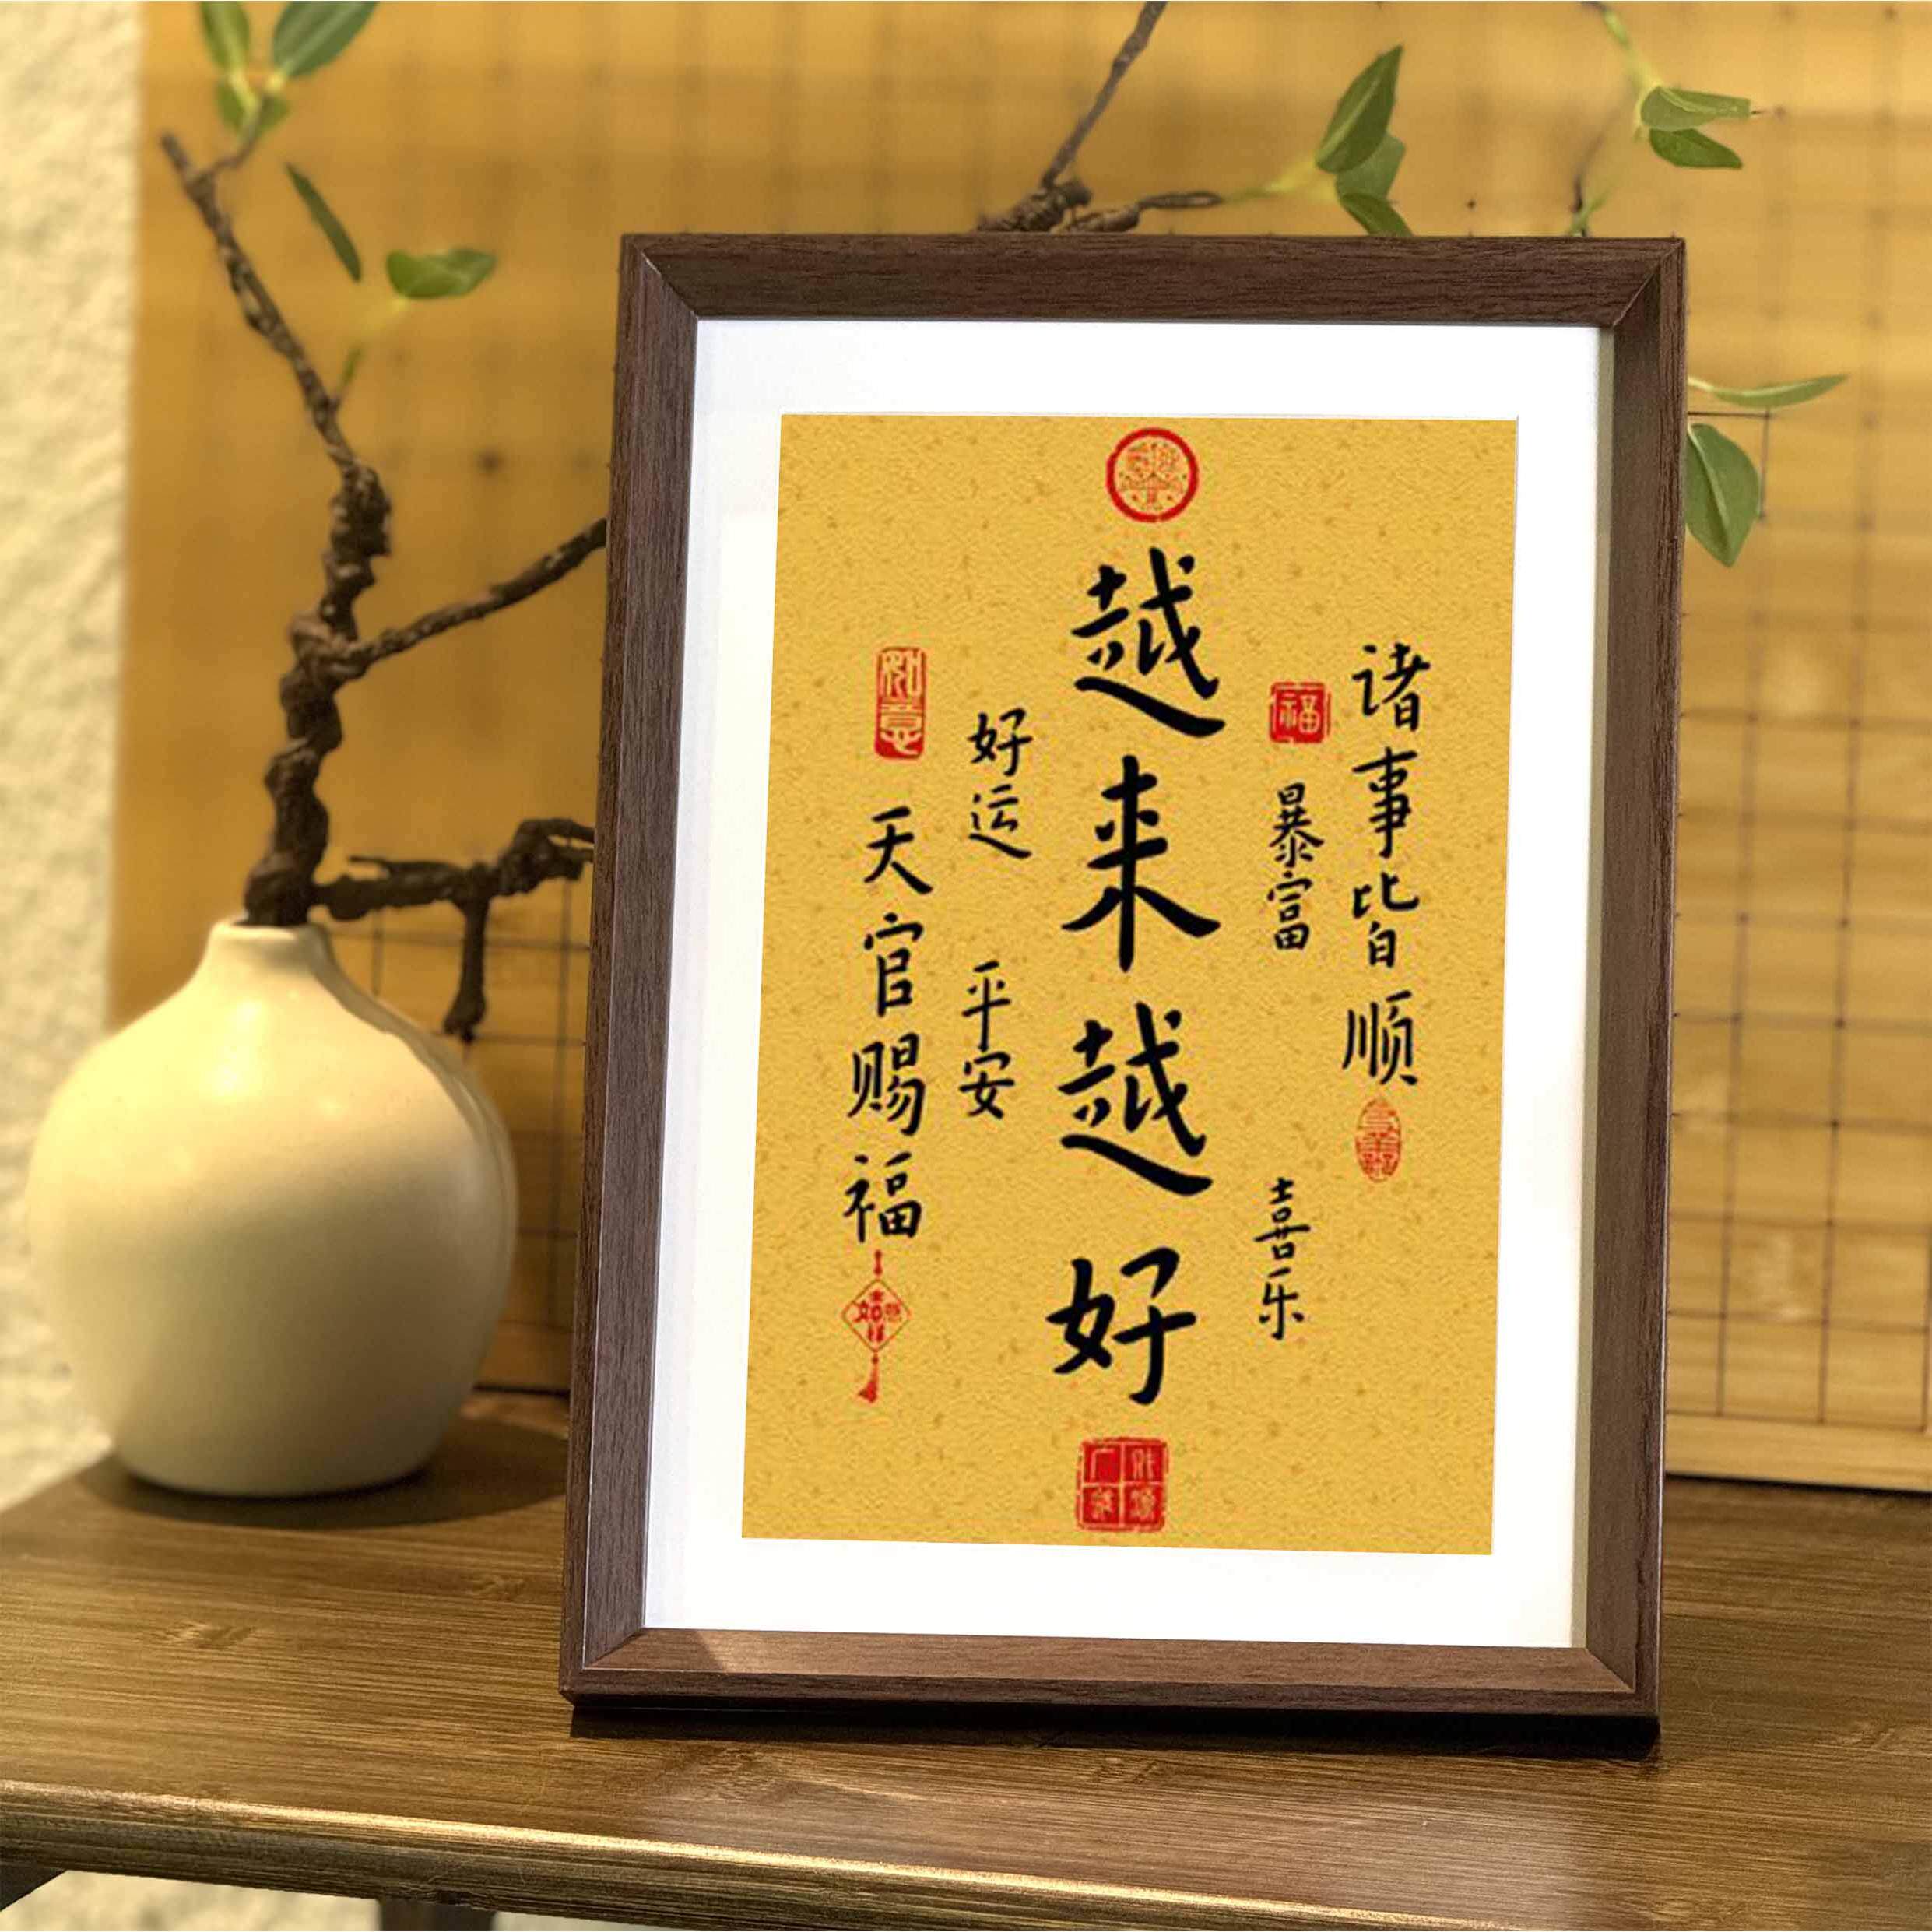 诸事皆顺
福
暴富
喜乐
越来越好
好运
平安
如意
天官赐福